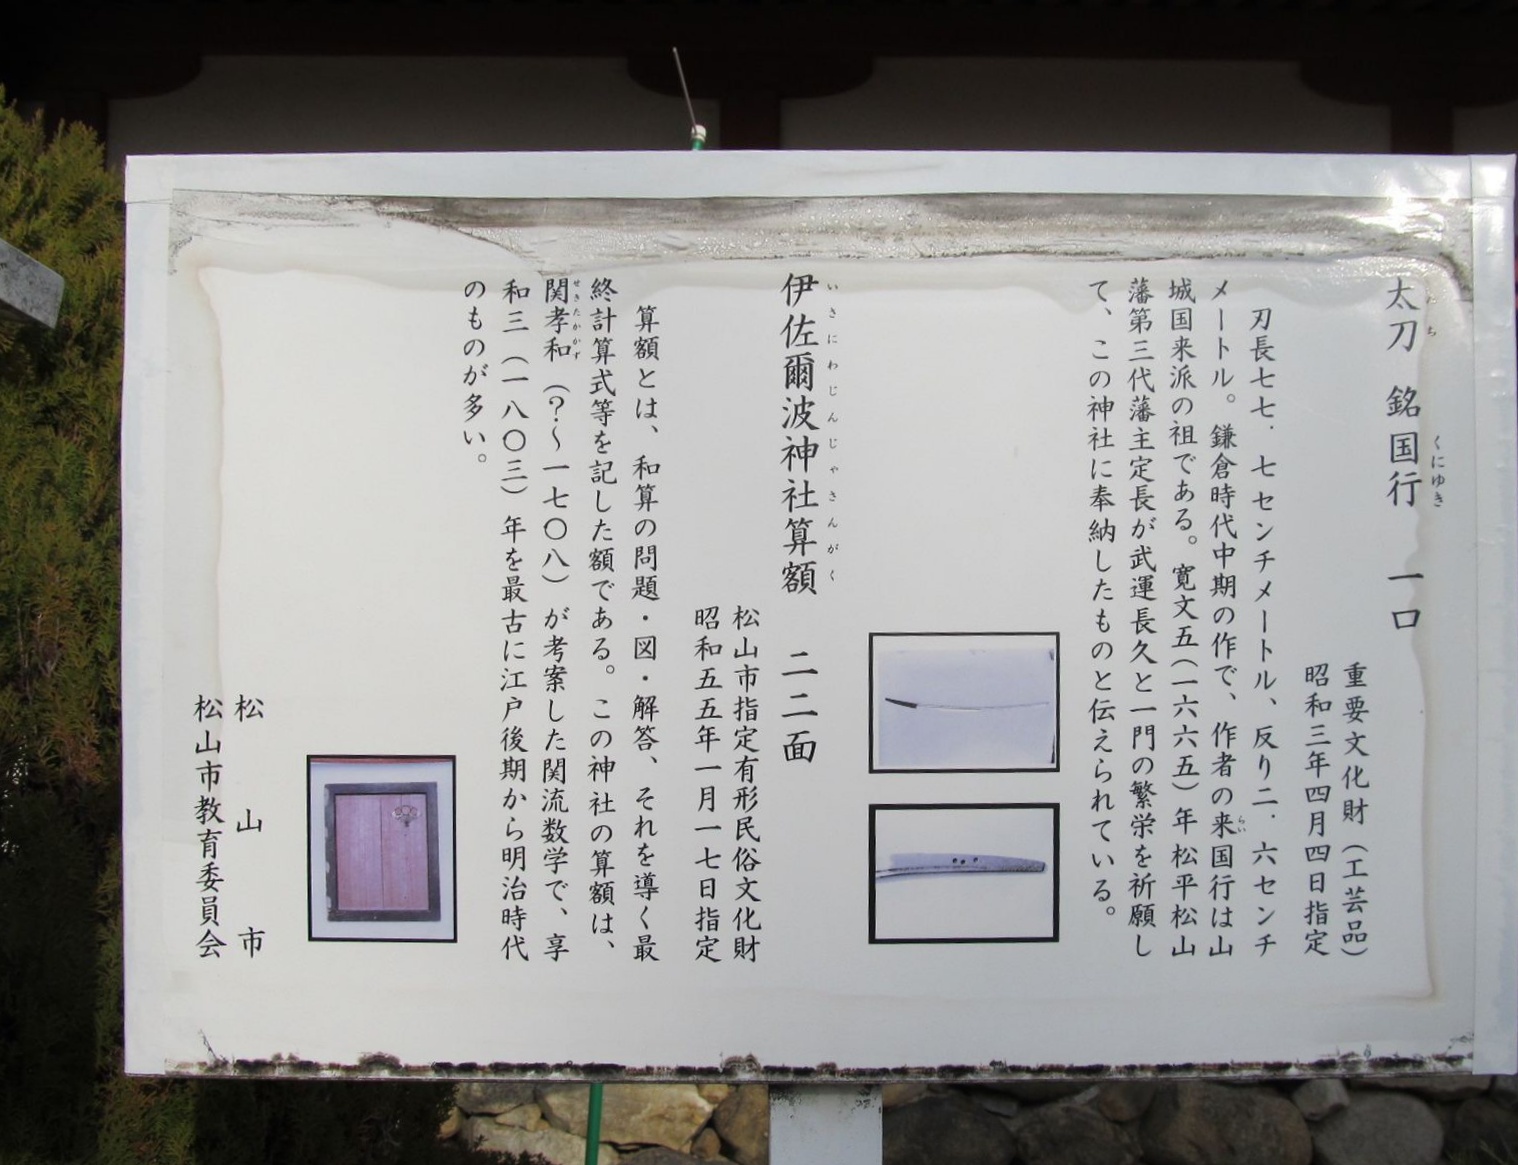 太刀 銘国行 一口
ち くにゆき
重要文化財（工芸品）
昭和三年四月四日指定
刃長七七．七センチメートル、反り二．六センチ
メートル。鎌倉時代中期の作で、作者の来国行は山
らい
城国来派の祖である。寛文五（一六六五）年松平松山
藩第三代藩主定長が武運長久と一門の繁栄を祈願し
て、この神社に奉納したものと伝えられている。
伊佐爾波神社算額 二二面
いさにわじんじゃさんがく
松山市指定有形民俗文化財
昭和五五年一月一七日指定
算額とは、和算の問題・図・解答、それを導く最
終計算式等を記した額である。この神社の算額は、
関孝和（？～一七〇八）が考案した関流数学で、享
せきたかかず
和三（一八〇三）年を最古に江戸後期から明治時代
のものが多い。
松山市
松山市教育委員会